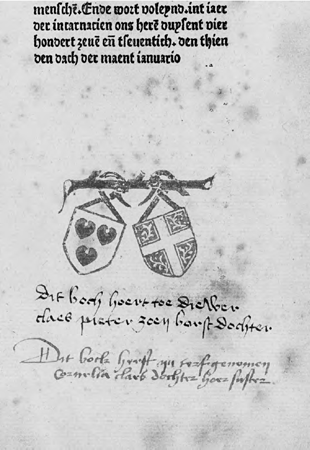 mensche͂. Ende wort voleynd. int iaer
der incarnacien ons here͂ duysent vier
hondert zeue͂ en͂ tseuentich. den thien
den dach der maent ianuario
Dit boeck hoert toe Diewer
claes pieter zoen borst dochter
Dit boeck heeft an
Cornelia claes dochter hoer suster